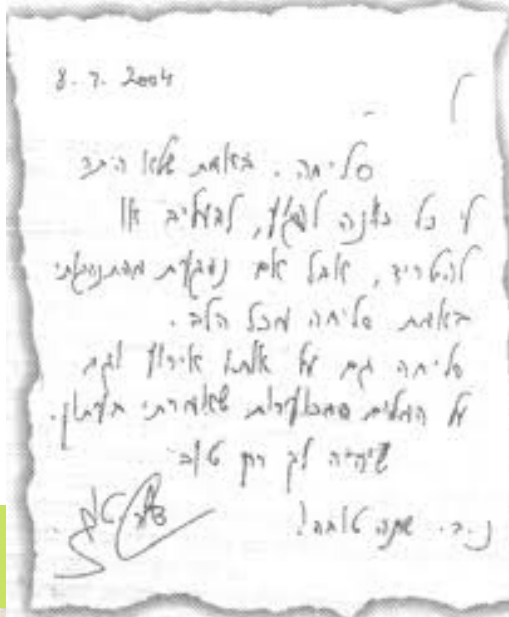 8.7.2004
ל
סליחה. באמת שלא היתה
לי כל כוונה לפגוע, להעליב או
להטריד, אבל אם נפגעת מהתנהגותי
באמת סליחה מכל הלב.
סליחה גם על אותו אירוע וגם
על המילים המכוערות שאמרתי
שיהיה לך רק טוב
נ.ב. שנה טובה!